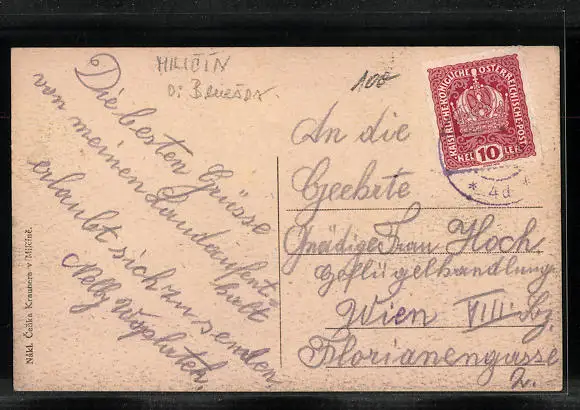 MILIČÍN
O: BENEŠOV.
100
Die besten Grüsse
von meinen Landaufent=
halt
erlaubt sich zu senden
Nelly
Nákl. Čeňka Krautera v Miličíně.
KAISERLICHE KÖNIGLICHE ÖSTERREICHISCHE POST
HEL 10 LER
* 4d *
An die
Geehrte
Gnädige Frau Hoch
Geflügelhandlung
Wien VIII. Bz.
Florianengasse
2.